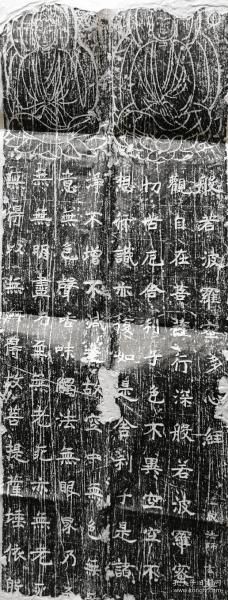 般若波羅蜜多心經
觀自在菩薩行深般若波羅蜜
切苦厄舍利子色不異空空不
想行識亦復如是舍利子是諸
淨不增不減是故空中無色無
意無色聲香味觸法無眼界乃
無無明盡乃至無老死亦無老死
無得以無所得故菩提薩埵依般